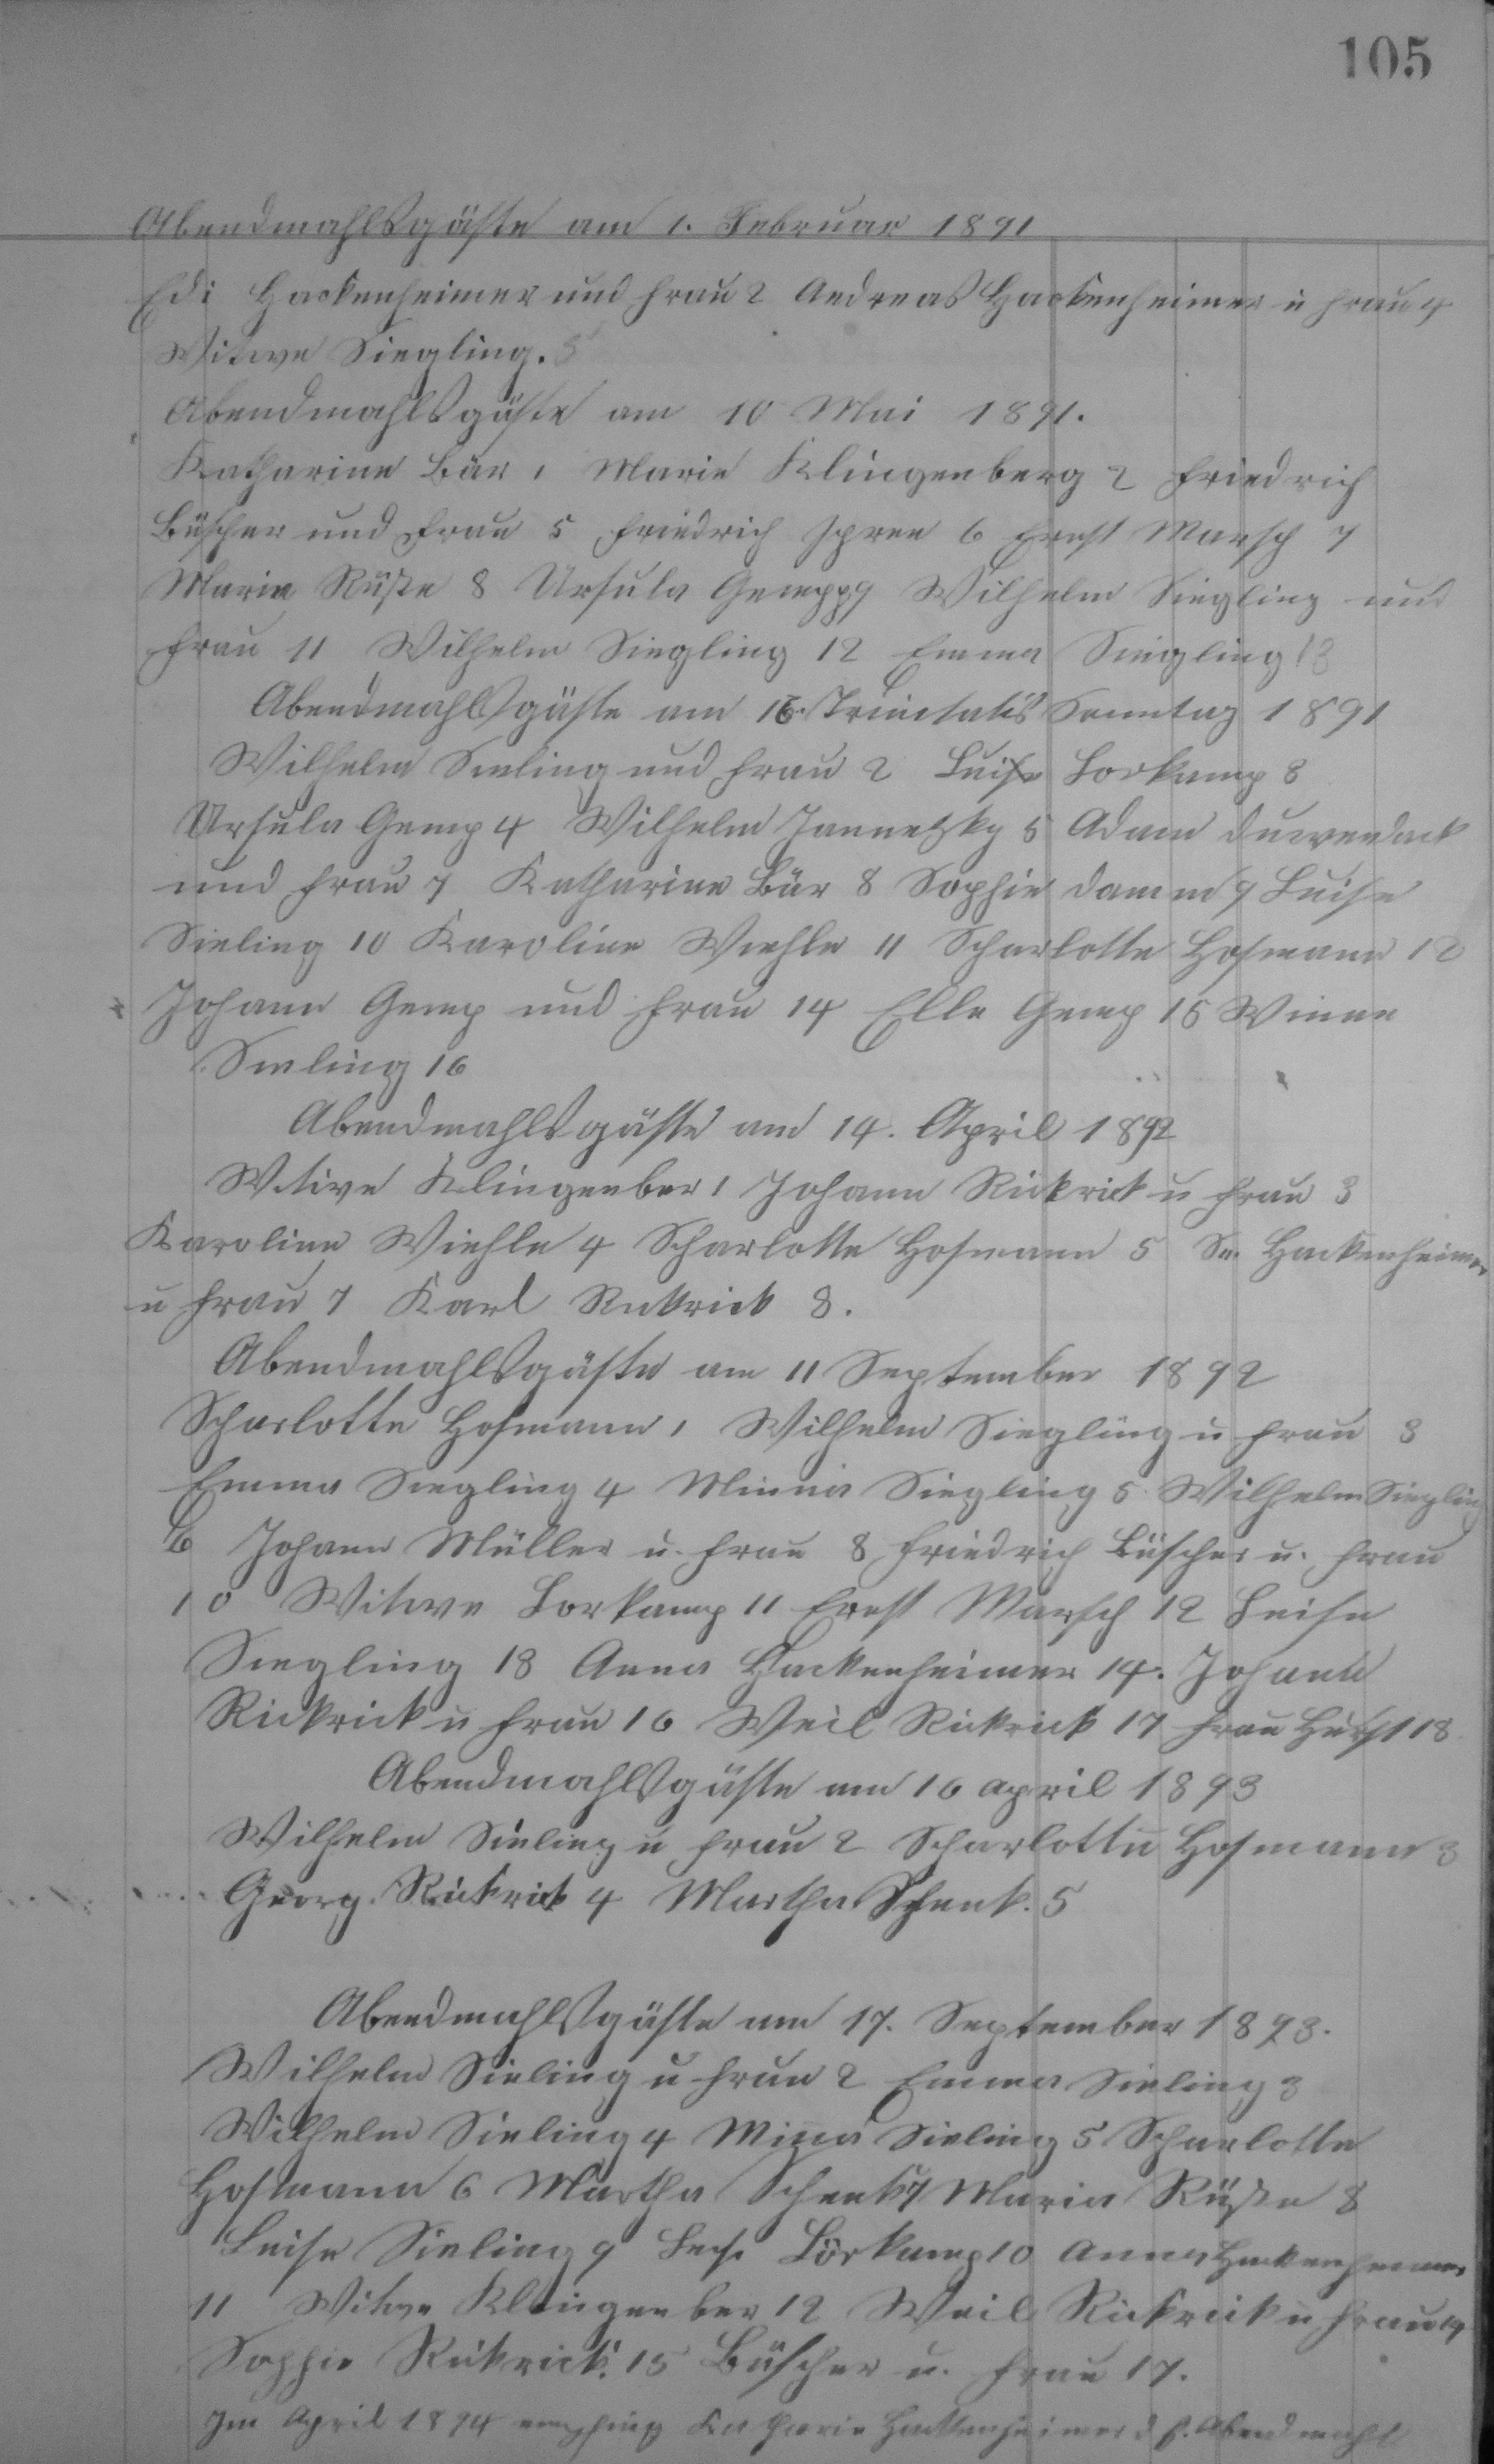 105
Abendmahlsgäste am 1. Februar 1891
Edi Hackenheimer und Frau 2 Andreas Hackenheimer u Frau 4
Witwe Siegling. 5
Abendmahlsgäste am 10 Mai 1891.
Katharine Bär 1 Marie Klingenberg 2 Friedrich
Büscher und Frau 5 Friedrich Spree 6 Ernst Marsch 7
Maria Rüße 8 Ursula Gempp 9 Wilhelm Siegling und
Frau 11 Wilhelm Siegling 12 Emma Siegling 13
Abendmahlsgäste am 16. Trinitatis Sonntag 1891
Wilhelm Sieling und Frau 2 Luise Lorkamp 3
Ursula Gemp 4 Wilhelm Jannetzky 5 Adam Duwendack
und Frau 7 Katharine Bär 8 Sophie Damm 9 Luise
Sieling 10 Karoline Wiehle 11 Scharlotte Hofmann 12
Johann Gemp und Frau 14 Elle Gemp 15 Winne
Sieling 16
Abendmahlsgäste am 14. April 1892
Witwe Klingenber 1 Johann Rickrick u Frau 3
Karoline Wiehle 4 Scharlotte Hofmann 5 Hackenheimer
u Frau 7 Karl Rickrick 8.
Abendmahlsgäste am 11 September 1892
Scharlotte Hofmann 1 Wilhelm Siegling u Frau 3
Emma Siegling 4 Minna Siegling 5 Wilhelm Siegling
6 Johann Müller u. Frau 8 Friedrich Büscher u. Frau
10 Witwe Lorkamp 11 Ernst Marsch 12 Leise
Siegling 13 Anna Hackenheimer 14. Johann
Rickrick u Frau 16 Weil Rickrick 17 Frau Hurst 18
Abendmahlsgäste am 16 april 1893
Wilhelm Sieling u Frau 2 Scharlotte Hofmann 3
Georg Rickrick 4 Martha Schenk. 5
Abendmahlsgäste am 17. September 1893.
Wilhelm Sieling u Frau 2 Emma Sieling 3
Wilhelm Sieling 4 Mina Sieling 5 Scharlotte
Hofmann 6 Martha Schenk 7 Maria Rüße 8
Leise Sieling 9 Leise Lörkamp 10 Anna Hackenheimer
11 Witwe Klingenber 12 Weil Rickrick u Frau 14
Sophie Rickrick. 15 Büscher u. Frau 17.
Im April 1894 empfing Katharin Hackenheimer d. h. Abendmahl